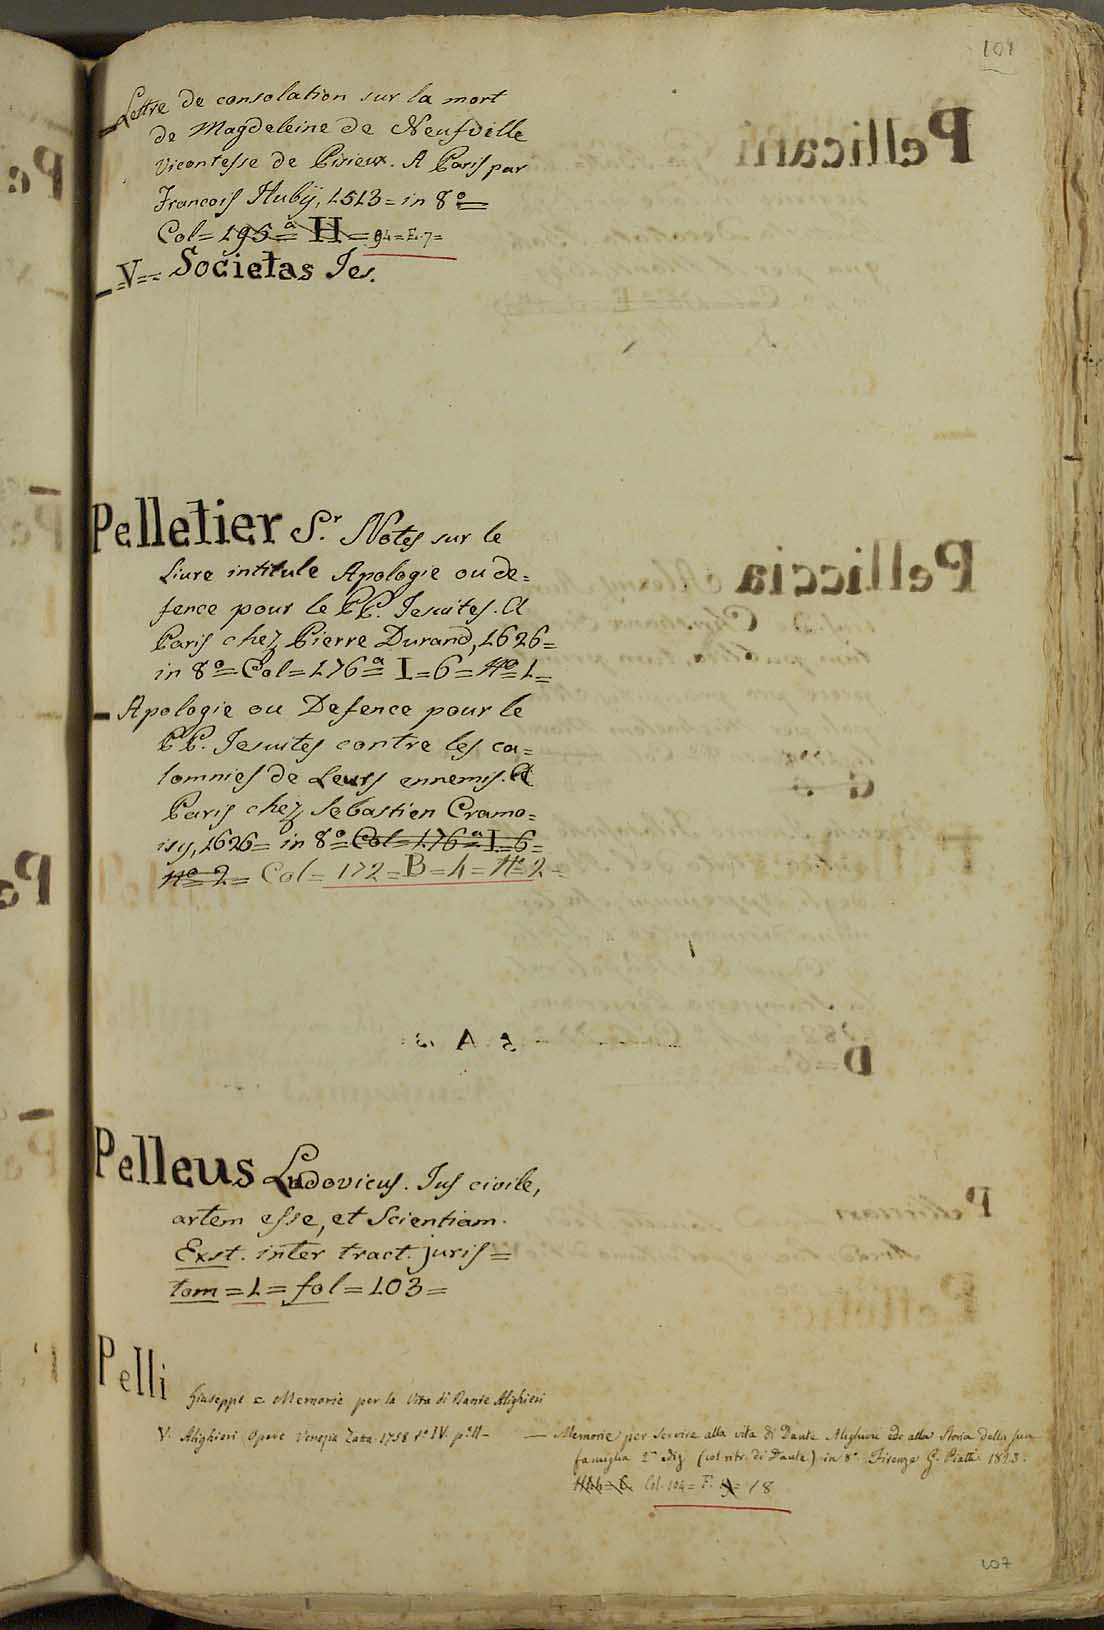 109
Lettre de consolation sur la mort
de Magdeleine de Neufville
Vicontesse de Pisieux. A Paris par
Francois Huby, 1513 = in 8º =
Col = 195 = a H = 94 = E. 7 =
V = Societas Jes.
Pelletier S.r Notes sur le
Livre intitule Apologie ou de=
fence pour le PP. Jesuites. A
Paris chez Pierre Durand, 1626 =
in 8º = Col = 176 a = I = 6 = Nº 1 =
Apologie ou Defence pour le
PP. Jesuites contre les ca=
lomnies de Leurs ennemis. A
Paris chez Sebastien Cramo=
isy, 1626 = in 8º = Col = 176 a I = 6 =
Nº 2 = Col = 172 = B = 4 = Nº 2 =
Pelleus Ludovicus. Jus civile,
artem esse, et Scientiam.
Exst. inter tract. juris =
tom = 1 = fol = 103 =
Pelli
Giuseppe = Memorie per la Vita di Dante Alighieri
V. Alighieri Opere Venezia Zatta 1758 tº IV. pº II -
— Memorie per servire alla vita di Dante Alighieri ed alla Storia della sua
famiglia 2ª ediz (col ritr. di Dante) in 8º Firenze G. Piatti 1823.
Col. 104 = F. 18
107